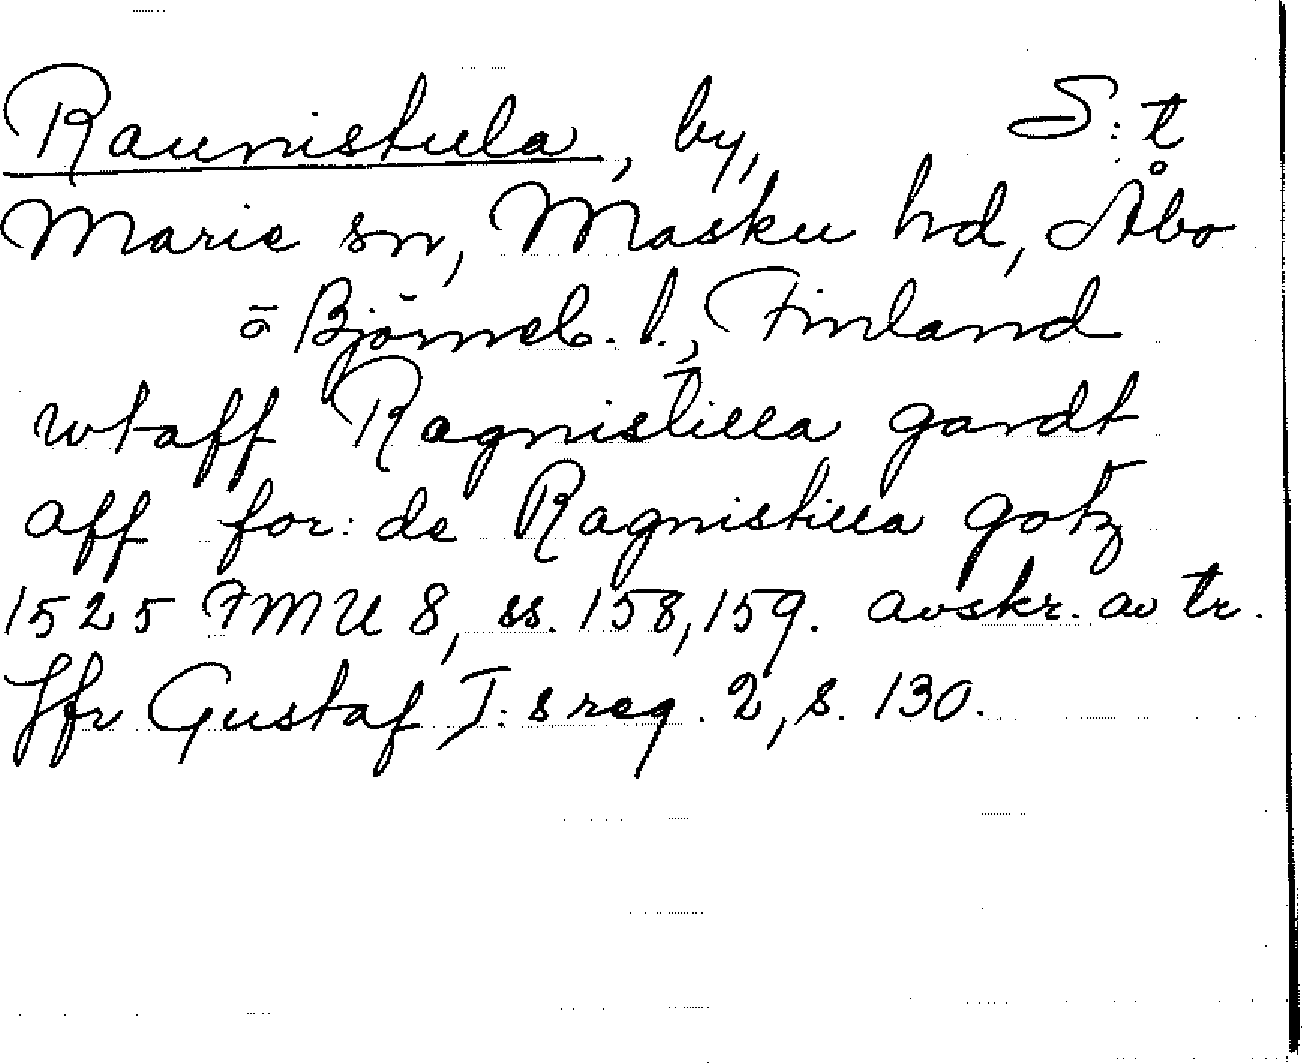 Raunistula, by, S:t
Marie sn, Masku hd, Åbo
o Björneb. l., Finland
wtaff Ragnistilla gardt
aff for: de Ragnistilla gotz
1525 FMU 8, ss. 158, 159. avskr. av tr.
Jfr Gustaf I:s reg. 2, s. 130.